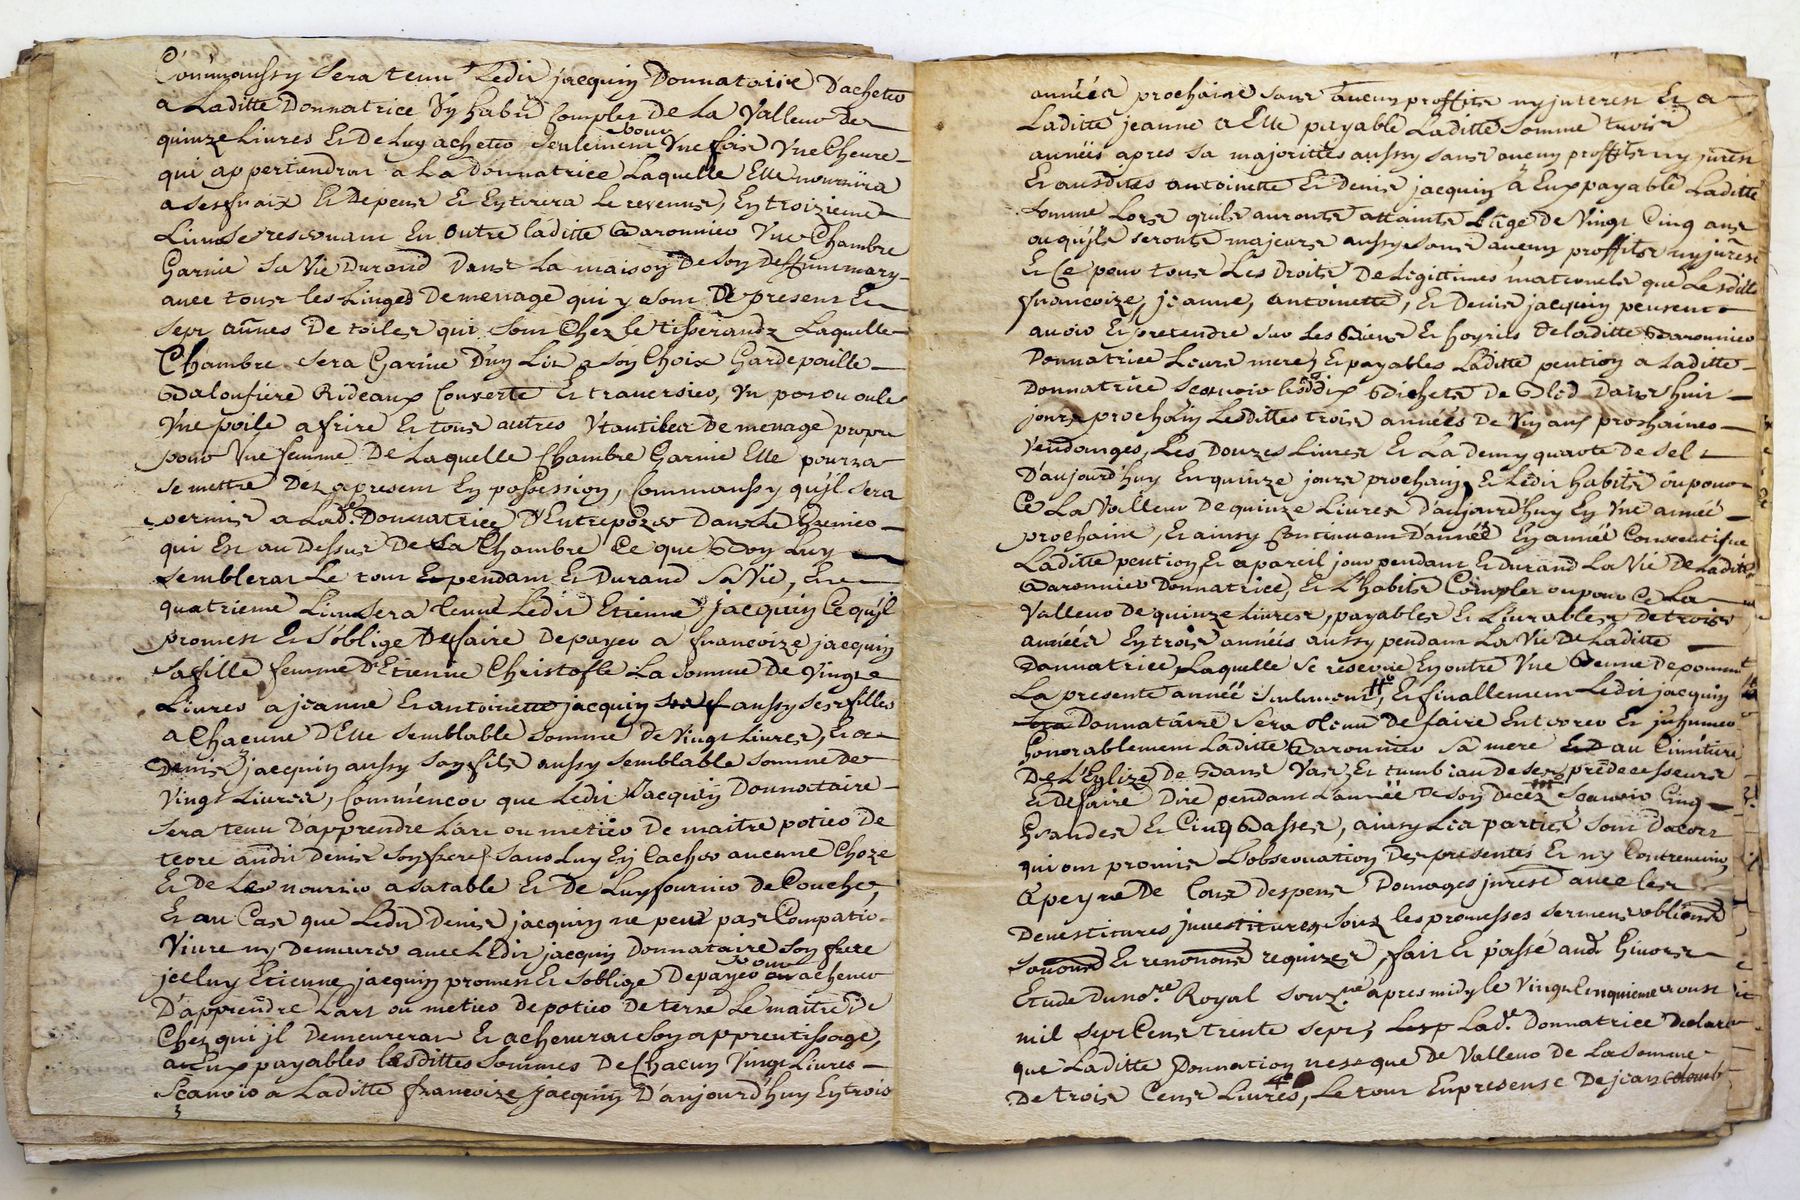 Commaussy sera tenu Ledit jacquin Donnataire D'acheter
a Laditte Donnatrice Un habit Complet De La Valleur de
quinze Livres Et De Luy acheter seulement pour Une fois Une Cheure
qui appertiendrat a La Donnatrice Laquelle Elle nourrira
a ses fraix Et Depens Et En tirera Le revenus, En troizieme
Lieu se reservant En outre laditte Baronnier Une Chambre
Garnie Sa Vie Durand Dans La maison De son Deffunt mary
avec tous les Linges De menage qui y sont De present Et
sept aunes De toiles qui sont Chez le tisserandz Laquelle
Chambre sera Garnie D'un Lit a son Choix Garde paille
Baloufiere Rideaux Couverte Et traversier, Un pot ou oule
Une poile a frire Et tous autres Utantiles De menage propre
pour Une femme De Laquelle Chambre Garnie Elle pourra
se mettre Dez apresent En possession, Commaussy qu'il sera
permis a Lade Donnatrice D'Entrepozer Dans Le Grenier
qui Est au Dessus De La Chambre Ce que Bon Luy
semblerat Le tout Et pendant Et Durand Sa Vie, Et
quatrieme Lieu sera tenu Ledit Etienne jacquin Ce qu'il
promet Et s'oblige De faire De payer a francoize jacquin
sa fille femme D'Etienne Christofle La somme De Vingt
Livres a jeanne Et antoinette jacquin aussy ses filles
a Chacune D'Elle semblable somme de Vingt Livres, Et a
Denis jacquin aussy son fils aussy semblable somme De
Vingt Livres, Comm'encor que Ledit Jacquin Donnataire
sera tenu D'apprendre L'art ou metier De maitre potier De
terre audit Denis son frere, sans Luy En Cacher aucune Choze
Et De Le nourrir a sa table Et De Luy fournir De Couche,
Et au Cas que Ledit Denis jacquin ne peut pas Compatir
Vivre ny Demeurer avec LEdit jacquin Donnataire son frere
jceluy Etienne jacquin promet Et s'oblige De payer pour achever
D'apprendre L'art ou metier De potier De terre Le maitre De
Chez qui jl Demeurerat Et acheverat son apprentissage,
a Eux payables lesdittes sommes De Chacun Vingt Livres
Scavoir a Laditte francoize jacquin D'aujourd'huy En trois
années prochaine sans aucun proffits ny jnterest Et a
Laditte jeanne a Elle payable Laditte somme trois
années apres sa majorittés aussy sans aucun proffits ny jnterest
Et ausdites antoinette Et Denis jacquin a Eux payable Laditte
somme Lors qu'ils auronts attaints L'age De Vingt Cinq ans
ou qu'ils seronts majeurs aussy sans aucun proffits ny jnterest
Et Ce pour tous Les Droits De Legittimes maternels que Lesdits
francoize, jeanne, antoinette, Et Denis jacquin peuvent
avoir Et pretendre sur Les Biens Et hoyries De laditte Baronnier
Donnatrice Leurs mere, Et payables Laditte pention a Laditte
Donnatrice Scavoir lesd. dix Bichets De Bled Dans huit
jours prochain Lesdittes trois années De Vin aux prochaines
Vendanges, Les Douzes Livres Et La Demy quarte De sel
D'aujourd'huy En quinze jours prochain, Et Ledit habits ou pour
Ce La Valleur De quinze Livres D'aujourd'huy En Une année
prochaine, Et ainsy Continuer D'année En année Consecutifve
Laditte pention Et a pareil jour pendant Et Durand La Vie De Laditte
Baronnier Donnatrice, Et L'habits Complet ou pour Ce La
Valleur De quinze Livres, payables Et Livrables De trois
années En trois années aussy pendant La Vie De Laditte
Donnatrice, Laquelle se reserve En outre Une Benne De pommes
La presente année seulement, Et finallement Ledit jacquin
Donnataire sera tenu De faire Entorrer Et jnhumer
honorablement Laditte Baronnier sa mere au Cimitiere
De L'Eglize De Dans Vas Et tumbeau De ses predecesseurs
Et De faire Dire pendant L'année De son Decez Scavoir Cinq
Grandes Et Cinq Basses, ainsy Les parties sont D'acort
qui ont promis L'observation Des presentes Et ny Contrevenir
a peyne De tous Despens Domages jnterest avec les
Devestitures jnvestitures, souz les promesses sermens obligations
soumons Et renonons requizes, fait Et passé aud. Givors
Etude Du nore. Royal souzné. apres midy le Vingt Cinquieme aoust
mil sept Cens trente sept, Lade. Donnatrice Declare
que Laditte Donnation n'est que De Valleur De La somme
De trois Cens Livres, Le tout En presense De jean Colomb